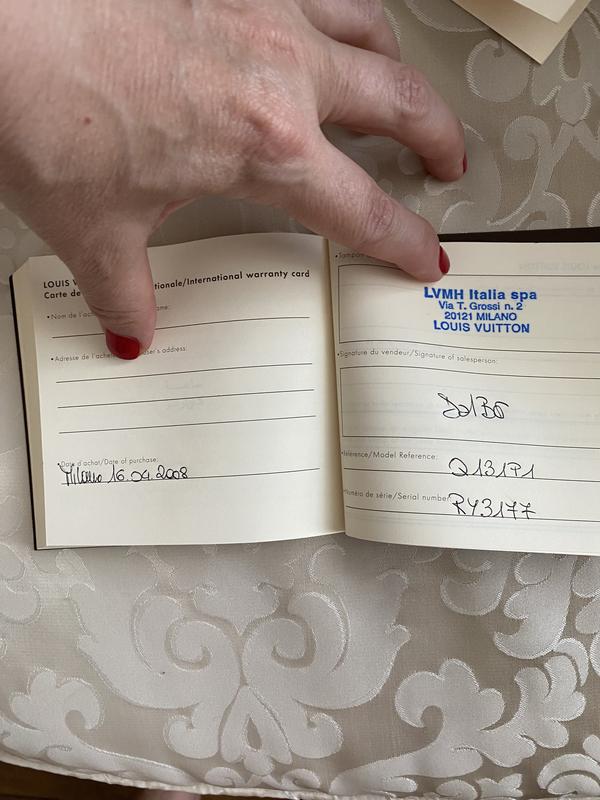 LOUIS V tionale/International warranty card
Carte de
•Nom de l'ac ame:
•Adresse de l'achete ser's address:
•Date d'achat/Date of purchase:
Milano 16.04.2008
•Tampon
LVMH Italia spa
Via T. Grossi n. 2
20121 MILANO
LOUIS VUITTON
•Signature du vendeur/Signature of salesperson:
•Référence/Model Reference:
Q131P1
•Numéro de série/Serial number
RY3177